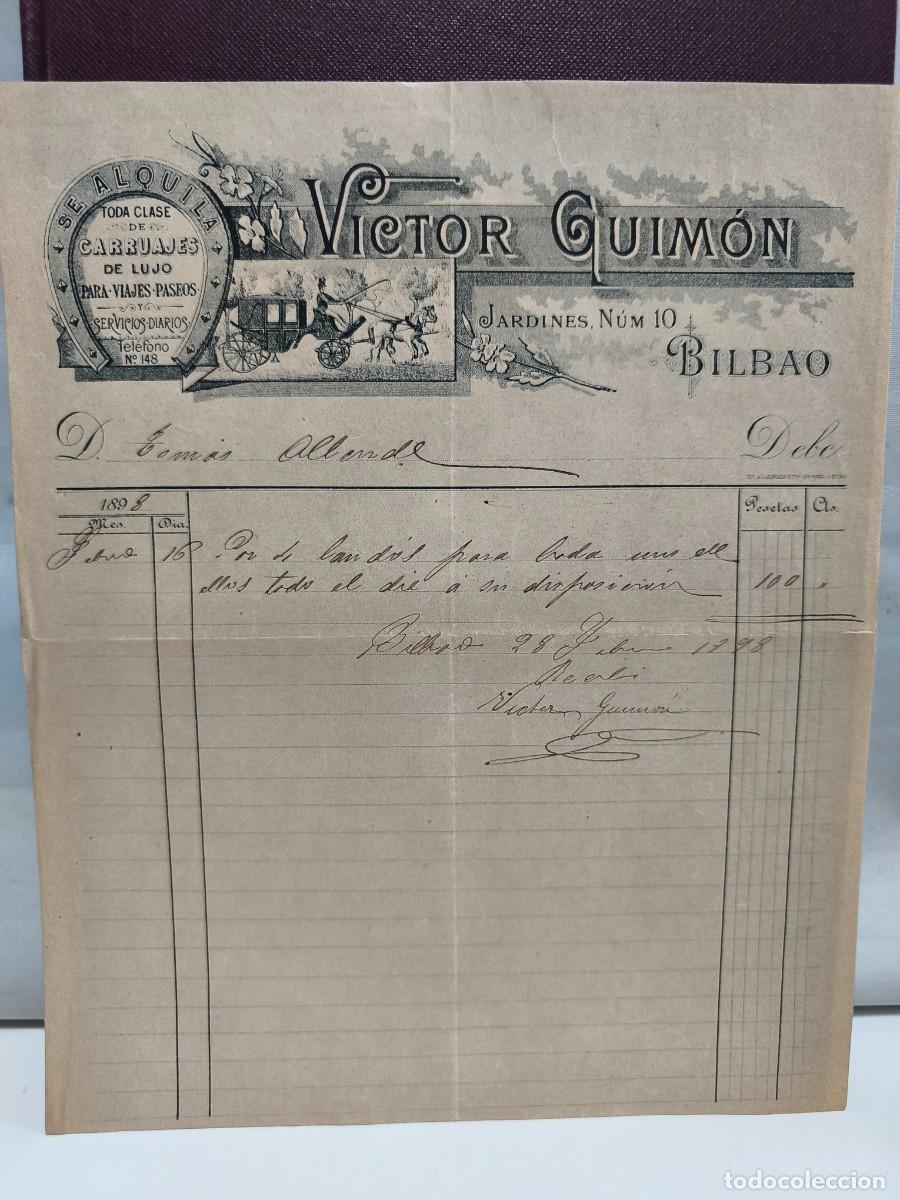 SE ALQUILA
TODA CLASE
DE
CARRUAJES
DE LUJO
PARA·VIAJES·PASEOS
Y
SERVICIOS·DIARIOS
Teléfono
Nº 148
VICTOR GUIMÓN
JARDINES, NÚM 10
BILBAO
D. Tomás Allende Debe
1898 Pesetas Cts.
Mes. Dia.
16 Por 4 landós para boda uno de
ellos todo el dia á su disposición 100 "
Bilbao 28 1898
Recibi
Victor Guimón
todocoleccion